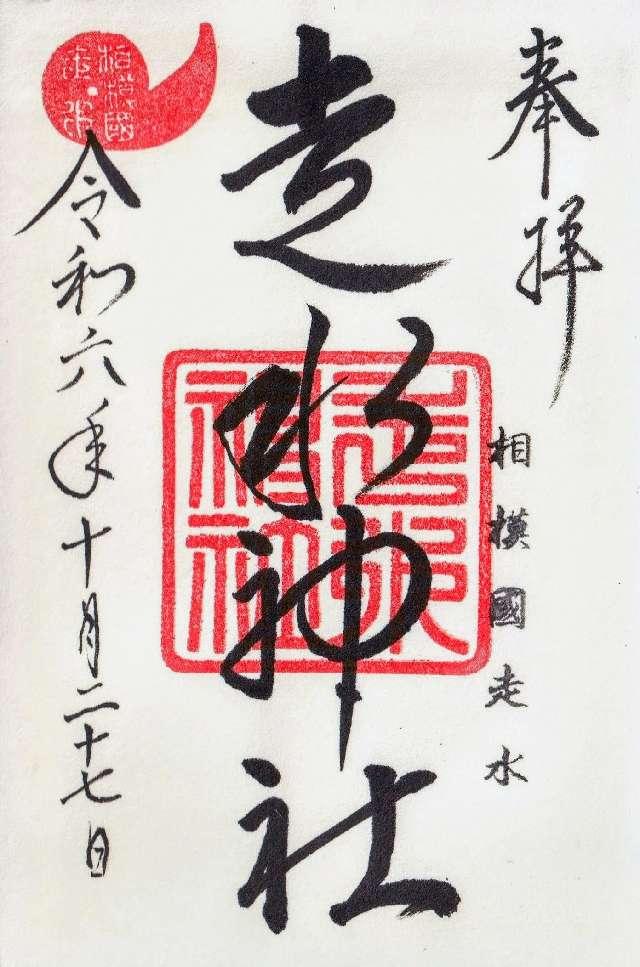 奉拝
相模國走水
走水神社
走水神社
令和六年十月二十七日
相模國